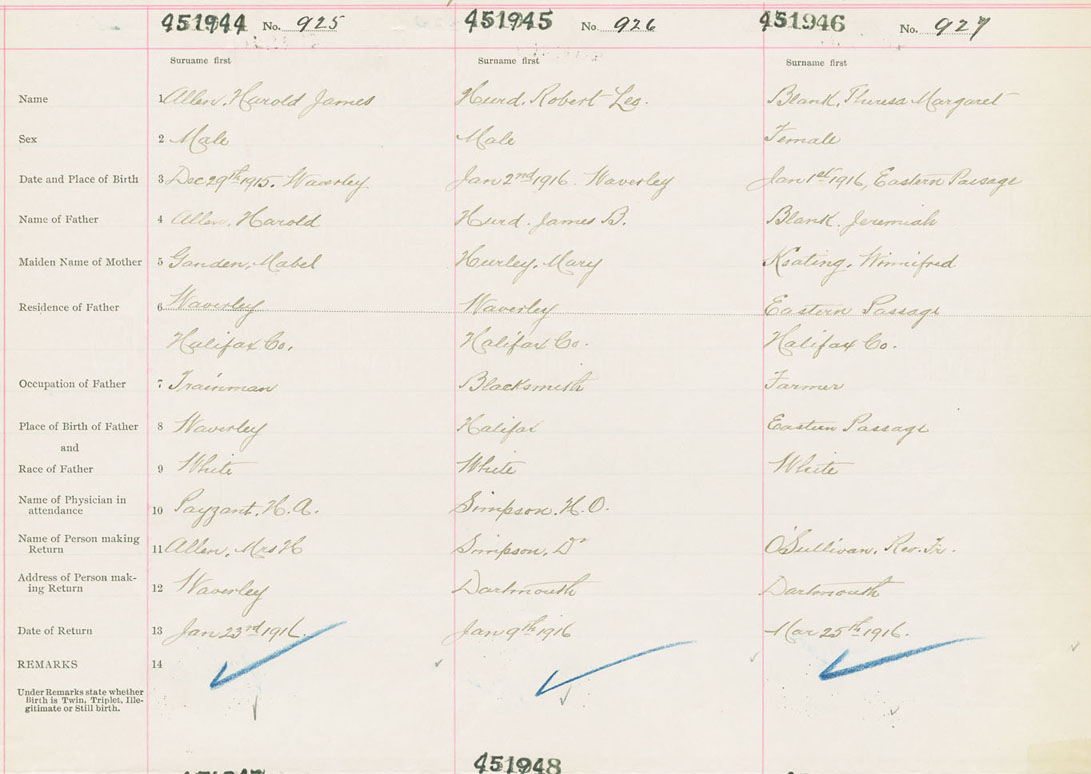 451944 No. 925 451945 No 926 451946 No. 927
Surname first Surname first Surname first
Name 1 Allen, Harold James Hurd, Robert Leo. Blank, Theresa Margaret
Sex 2 Male Male Female
Date and Place of Birth 3 Dec 29th 1915. Waverley Jan 2nd 1916. Waverley Jan 1st 1916, Eastern Passage
Name of Father 4 Allen, Harold Hurd, James B. Blank, Jeremiah
Maiden Name of Mother 5 Mabel Hurley, Mary Keating, Winnifred
Residence of Father 6 Waverley Waverley Eastern Passage
Halifax Co. Halifax Co. Halifax Co.
Occupation of Father 7 Trainman Blacksmith Farmer
Place of Birth of Father 8 Waverley Halifax Eastern Passage
and
Race of Father 9 White White White
Name of Physician in
attendance 10 Payzant, H. A. Simpson, H. O.
Name of Person making
Return 11 Allen, Mrs H Simpson, Dr O'Sullivan, Rev. Fr.
Address of Person mak-
ing Return 12 Waverley Dartmouth Dartmouth
Date of Return 13 Jan 23rd 1916. Jan 9th 1916 Mar 25th 1916.
REMARKS 14
Under Remarks state whether
Birth is Twin, Triplet, Ille-
gitimate or Still birth.
451948